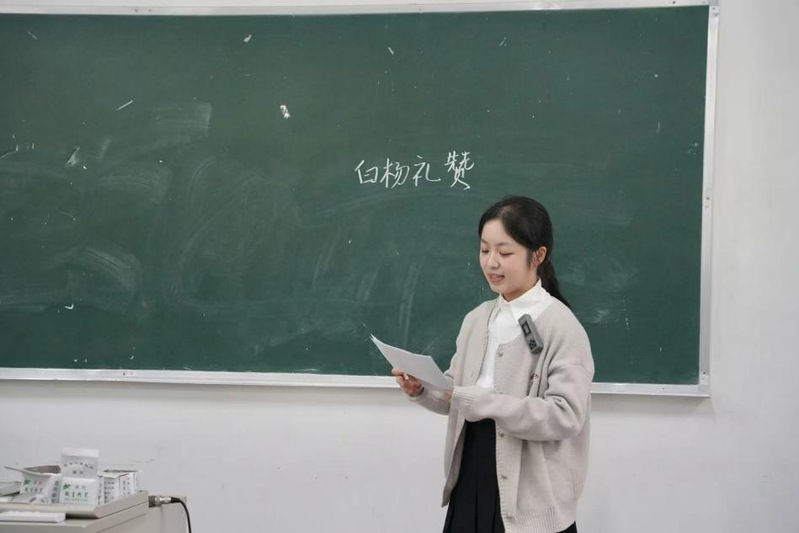 白杨礼赞